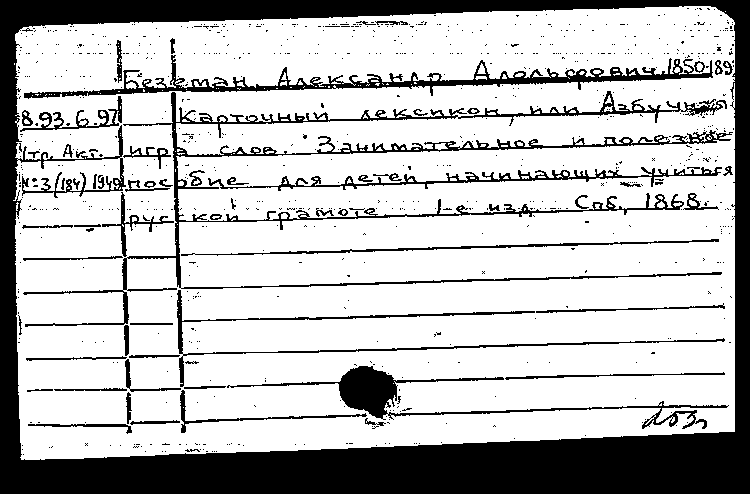 Беземан, Александр Адольфович, 1850-189
8.93.6.97 Карточный лексикон, или Азбучная
Утр. Акт. игра слов. Занимательное и полезное
№3 (184) 1949 пособие для детей, начинающих учиться
русской грамоте 1-е изд. Спб., 1868.